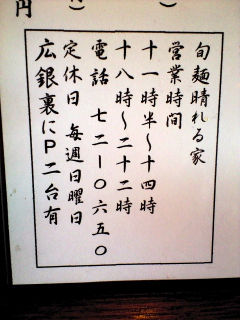 円
)
旬麺晴れる家
営業時間
十一時半〜十四時
十八時〜二十二時
電話 七二ー〇六五〇
定休日 毎週日曜日
広銀裏にP二台有